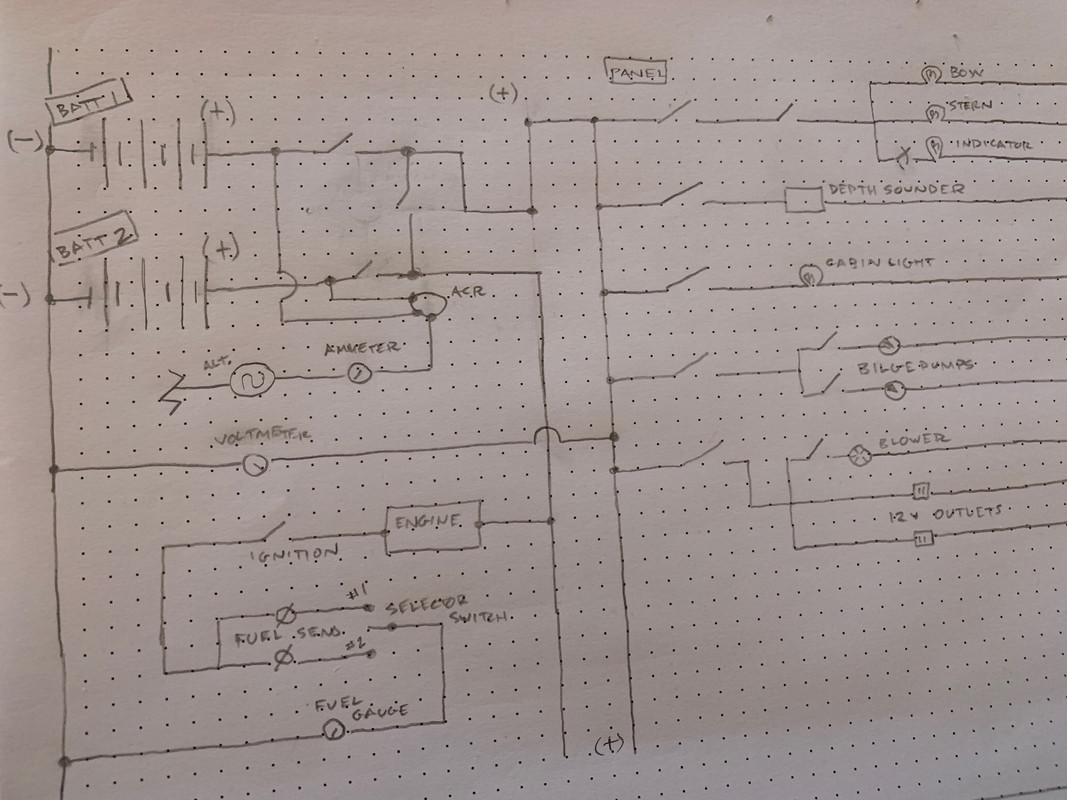 PANEL
BATT 1
(+)
(+)
(-)
BOW
STERN
INDICATOR
DEPTH SOUNDER
BATT 2
(+)
(-)
CABIN LIGHT
ACR
ALT.
AMMETER
BILGE PUMPS
VOLTMETER
BLOWER
12V OUTLETS
ENGINE
IGNITION
#1
SELECTOR
SWITCH
FUEL SEND.
#2
FUEL
GAUGE
(+)